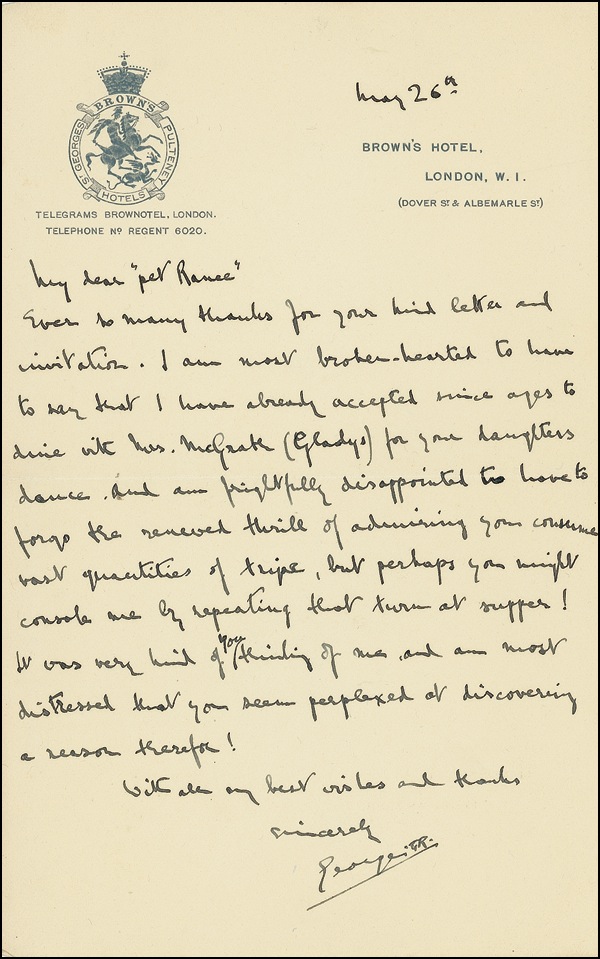 BROWN'S
ST GEORGES
PULTENEY
HOTELS
TELEGRAMS BROWNOTEL, LONDON.
TELEPHONE Nº REGENT 6020.
May 26th
BROWN'S HOTEL,
LONDON, W. 1.
(DOVER ST & ALBEMARLE ST)
My dear "pet Ranee"
Ever so many thanks for your kind letter and
invitation. I am most broken-hearted to have
to say that I have already accepted since ages to
dine with Mrs. McGrath (Gladys) for your daughters
dance. And am frightfully disappointed to have to
forgo the renewed thrill of admiring you consume
vast quantities of tripe, but perhaps you might
console me by repeating that turn at supper!
It was very kind of you thinking of me and am most
distressed that you seem perplexed at discovering
a reason therefor!
With all my best wishes and thanks
sincerely
George